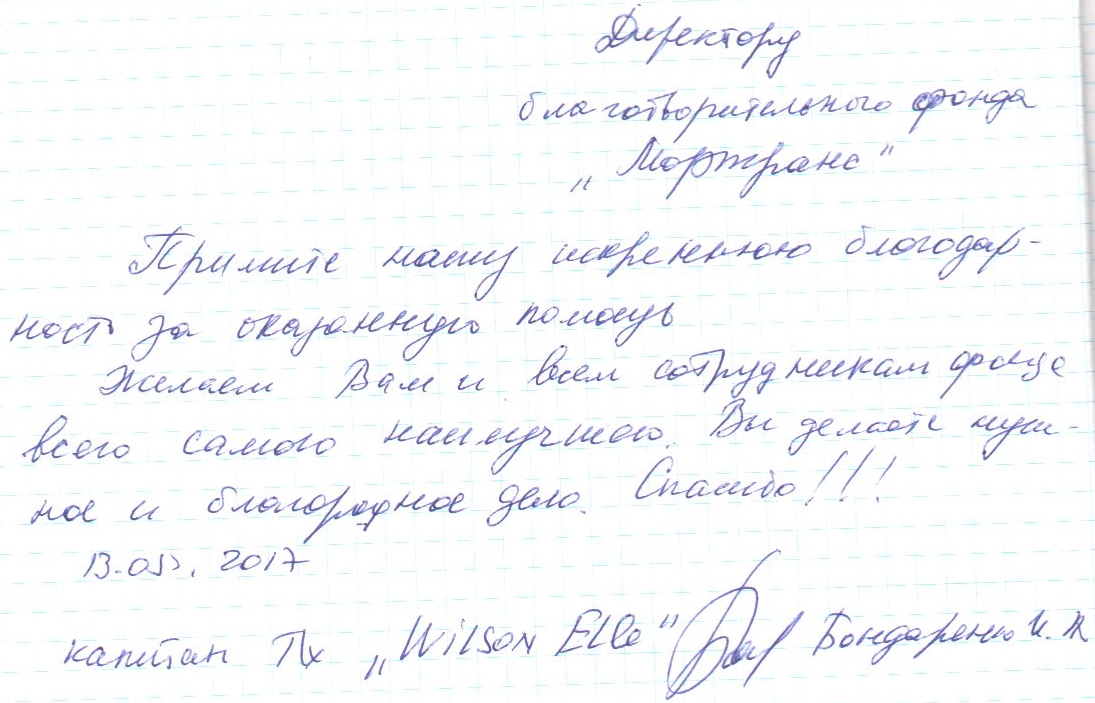 Директору
благотворительного фонда
„Мортранс"
Примите нашу искреннюю благодар-
ность за оказанную помощь
Желаем Вам и всем сотрудникам фонда
всего самого наилучшего. Вы делаете нуж-
ное и благородное дело. Спасибо!!!
2017
капитан „Wilson Elbe" Бондаренко И.